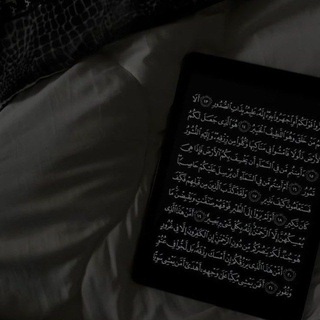 قَوْلَكُمْ أَوِ ٱجْهَرُواْ بِهِۦٓ إِنَّهُۥ عَلِيمٌۢ بِذَاتِ ٱلصُّدُورِ ١٣ أَلَا
يَعْلَمُ مَنْ خَلَقَ وَهُوَ ٱللَّطِيفُ ٱلْخَبِيرُ ١٤ هُوَ ٱلَّذِى جَعَلَ لَكُمُ
ٱلْأَرْضَ ذَلُولًا فَٱمْشُواْ فِى مَنَاكِبِهَا وَكُلُواْ مِن رِّزْقِهِۦ وَإِلَيْهِ ٱلنُّشُورُ
١٥ ءَأَمِنتُم مَّن فِى ٱلسَّمَآءِ أَن يَخْسِفَ بِكُمُ ٱلْأَرْضَ فَإِذَا هِىَ
تَمُورُ ١٦ أَمْ أَمِنتُم مَّن فِى ٱلسَّمَآءِ أَن يُرْسِلَ عَلَيْكُمْ حَاصِبًا
فَسَتَعْلَمُونَ كَيْفَ نَذِيرِ ١٧ وَلَقَدْ كَذَّبَ ٱلَّذِينَ مِن قَبْلِهِمْ فَكَيْفَ
كَانَ نَكِيرِ ١٨ أَوَلَمْ يَرَوْاْ إِلَى ٱلطَّيْرِ فَوْقَهُمْ صَٰٓفَّٰتٍ وَيَقْبِضْنَ مَا
يُمْسِكُهُنَّ إِلَّا ٱلرَّحْمَٰنُ إِنَّهُۥ بِكُلِّ شَىْءٍۭ بَصِيرٌ ١٩ أَمَّنْ هَٰذَا ٱلَّذِى
هُوَ جُندٌ لَّكُمْ يَنصُرُكُم مِّن دُونِ ٱلرَّحْمَٰنِ إِنِ ٱلْكَٰفِرُونَ إِلَّا فِى غُرُورٍ
٢٠ أَمَّنْ هَٰذَا ٱلَّذِى يَرْزُقُكُمْ إِنْ أَمْسَكَ رِزْقَهُۥ بَل لَّجُّواْ فِى عُتُوٍّ
وَنُفُورٍ ٢١ أَفَمَن يَمْشِى مُكِبًّا عَلَىٰ وَجْهِهِۦٓ أَهْدَىٰٓ أَمَّن يَمْشِى سَوِيًّا